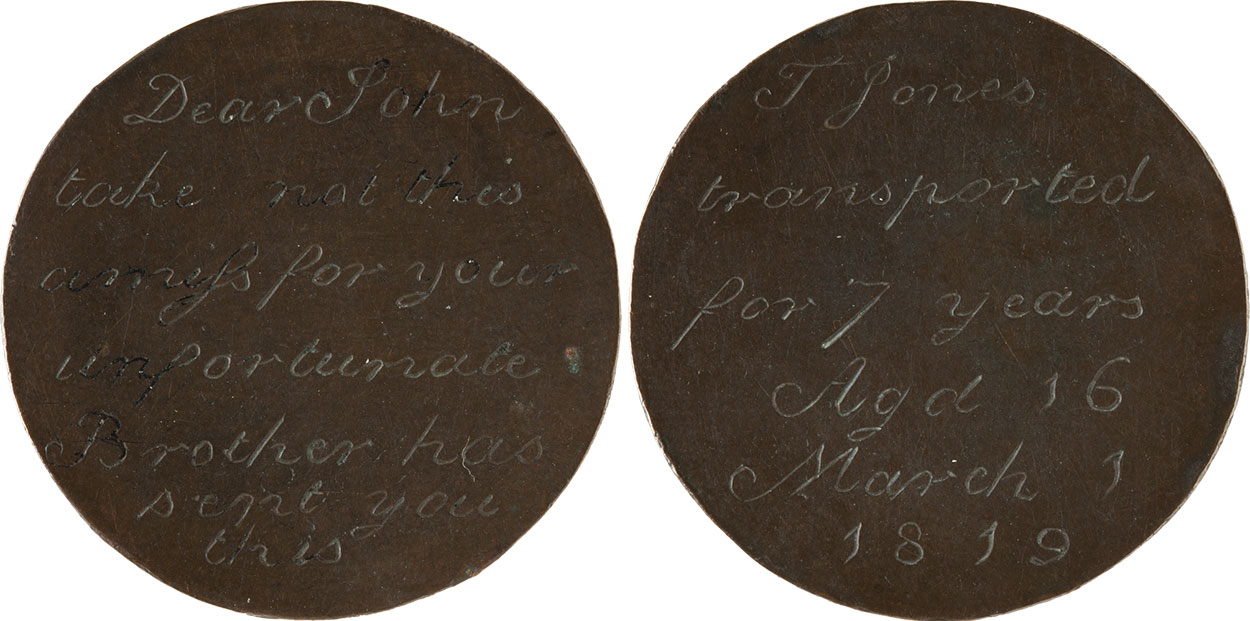 Dear John
take not this
amiſs for your
unfortunate
Brother has
sent you
this
T Jones
transported
for 7 years
Agd 16
March 1
1819